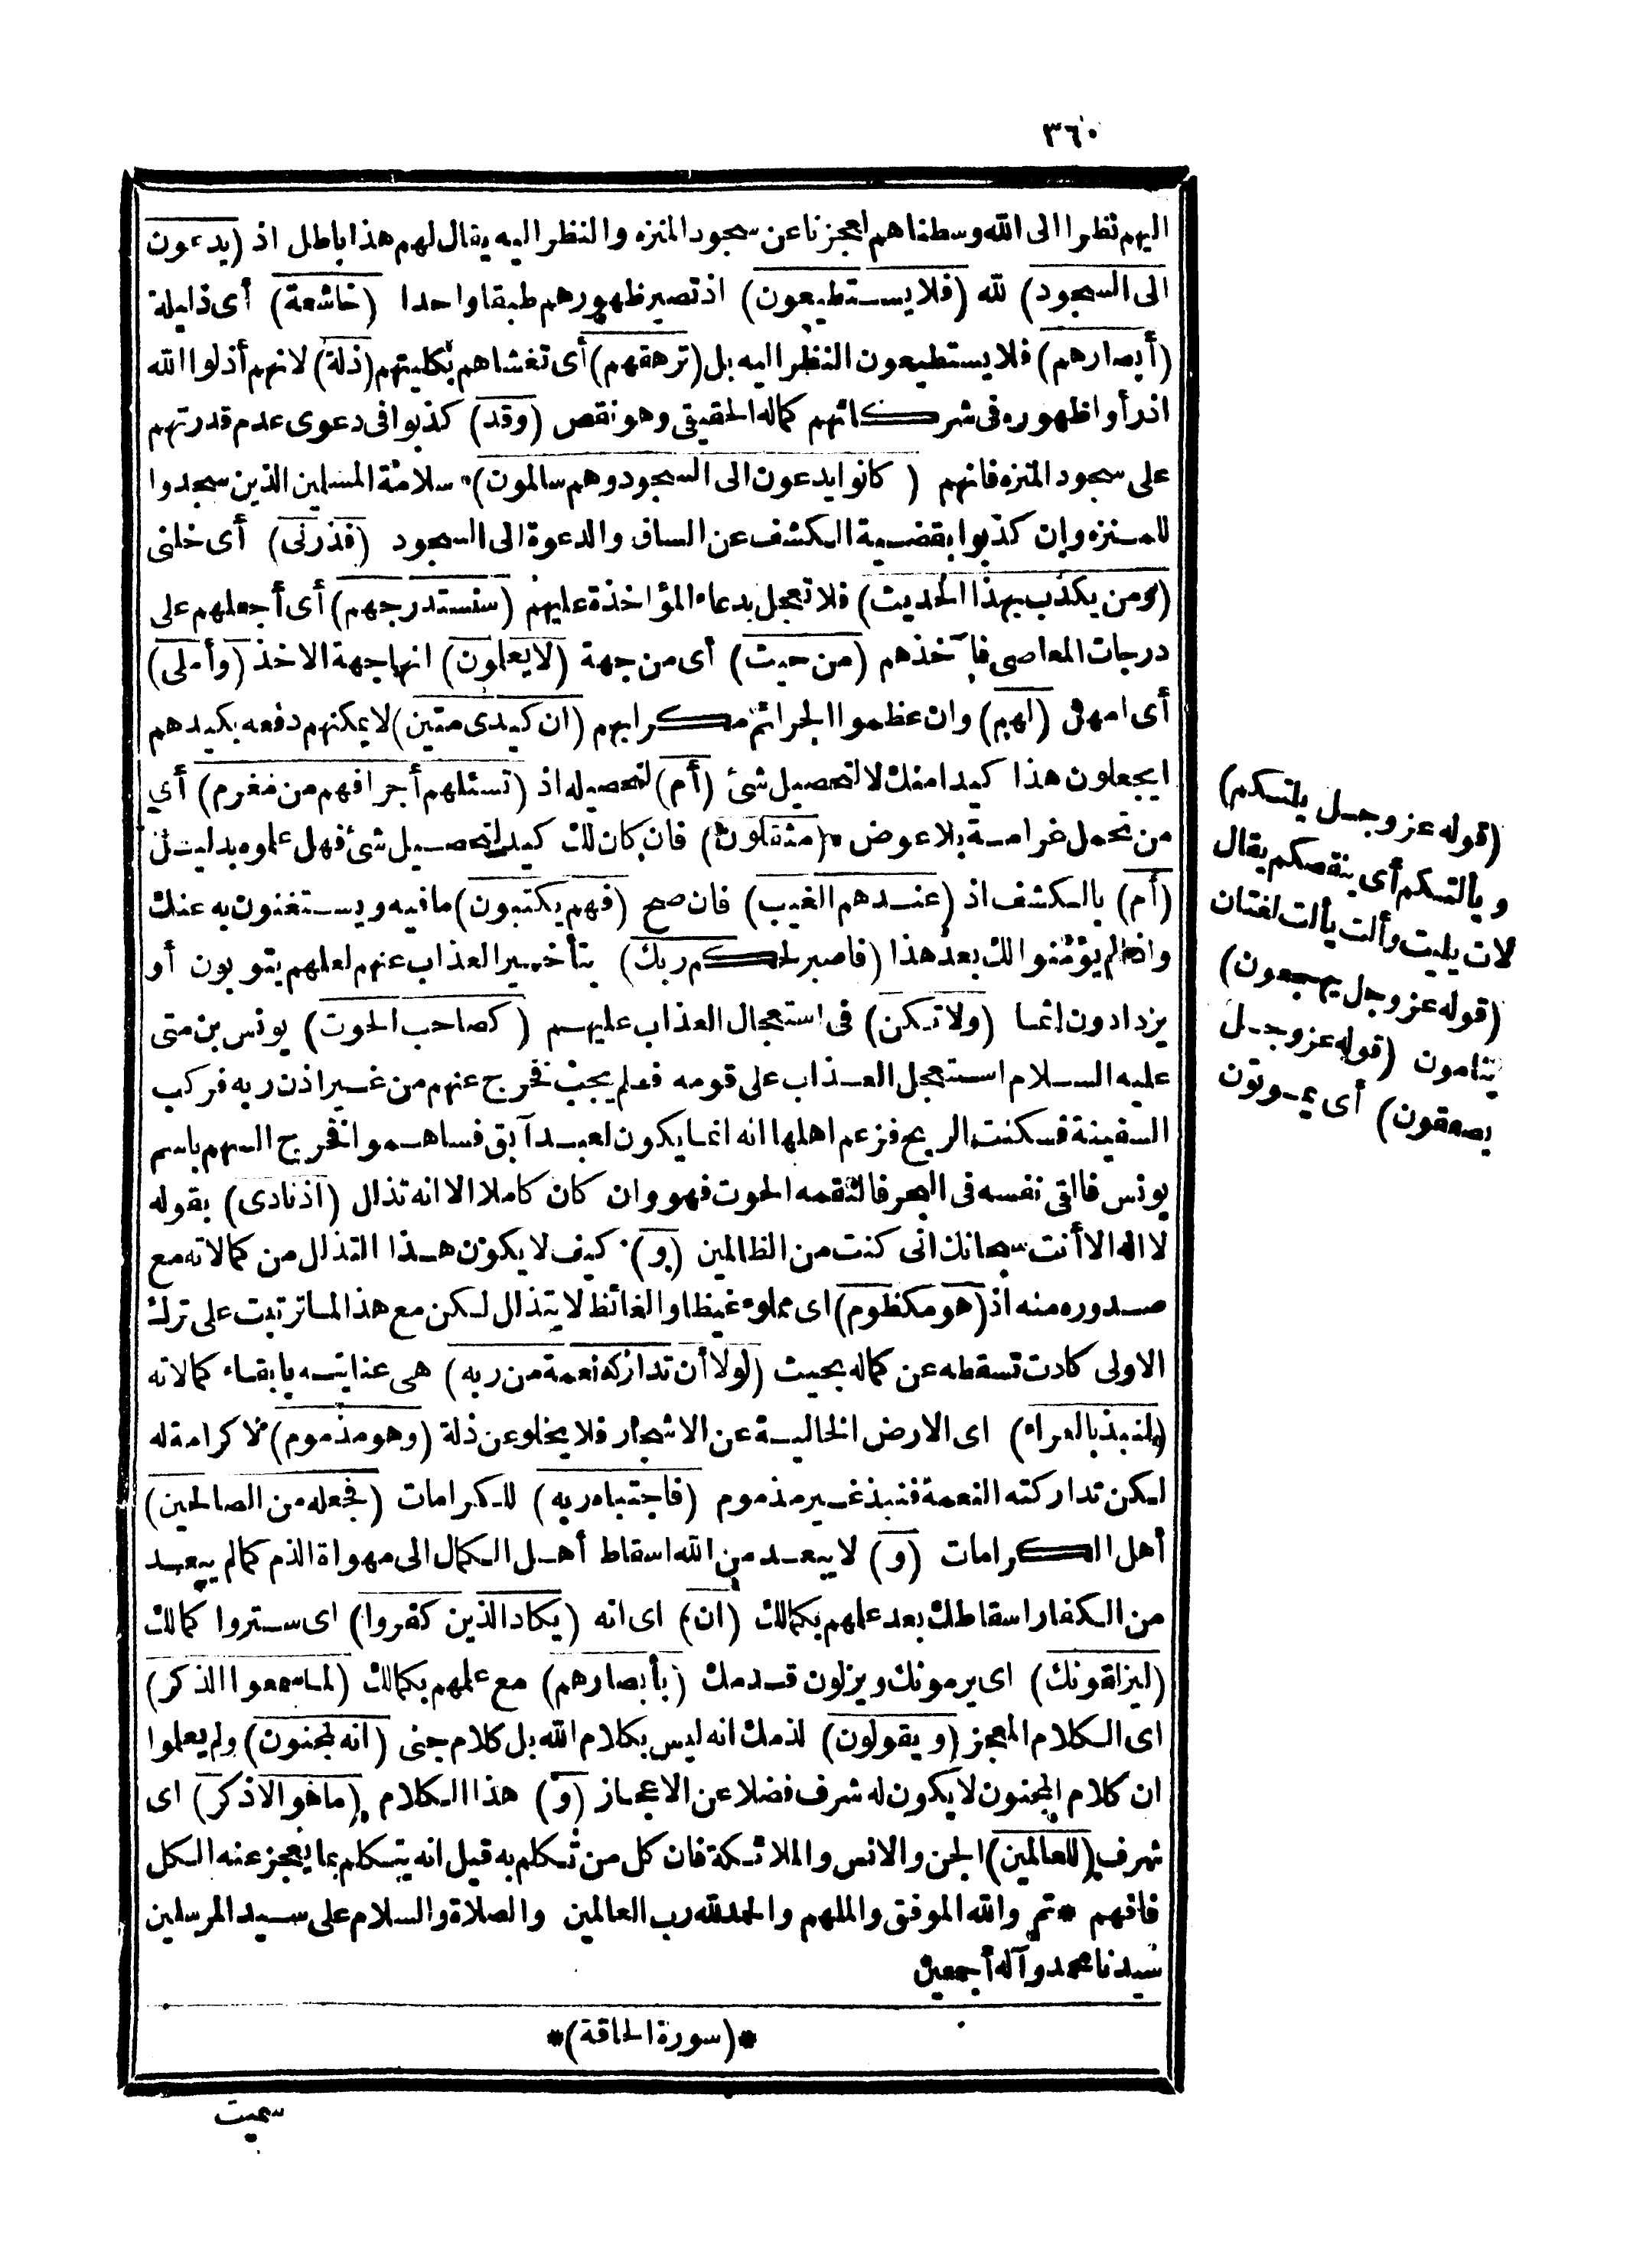 ٣٦٠
اليهم نظرا الى الله وسطناهم لعجزنا عن سجود المنزه والنظر اليه يقال لهم هذا باطل اذ (يدعون
الى السجود) لله (فلا يستطيعون) اذ تصير ظهورهم طبقا واحدا (خاشعة) أى ذليلة
(أبصارهم) فلا يستطيعون النظر اليه بل (ترهقهم) أى تغشاهم بكليتهم (ذلة) لانهم أذلوا الله
اذ رأوا ظهوره فى شركائهم كماله الحقيقى وهو نقص (وقد) كذبوا فى دعوى عدم قدرتهم
على سجود المنزه فانهم (كانوا يدعون الى السجود وهم سالمون) سلامة المسلين الذين سجدوا
للمنزه وان كذبوا بقضية الكشف عن الساق والدعوة الى السجود (فذرنى) أى خلنى
(ومن يكذب بهذا الحديث) فلا تعجل بدعاء المؤاخذة عليهم (سنستدرجهم) أى أجعلهم على
درجات المعاصى فآخذهم (من حيث) أى من جهة (لا يعلون) انها جهة الاخذ (وأملى)
أى امهل (لهم) وان عظموا الجرائم مكرا بهم (ان كيدى متين) لا يمكنهم دفعه بكيدهم
ايجعلون هذا كيدا منك لا لتحصيل شئ (أم) لتحصيله اذ (تسئلهم أجرا فهم من مغرم) أي
من تحمل غرامة بلا عوض (مثقلون) فان كان لك كيد لتحصيل شئ فهل علموه بدليل
(أم) بالكشف اذ (عندهم الغيب) فان صح (فهم يكتبون) ما فيه ويستغنون به عنك
واذا لم يؤمنوا لك بعد هذا (فاصبر لحكم ربك) بتأخير العذاب عنهم لعلهم يتوبون أو
يزدادون اثما (ولا تكن) فى استعجال العذاب عليهم (كصاحب الحوت) يونس بن متى
عليه السلام استعجل العذاب على قومه فلم يجب فخرج عنهم من غير اذن ربه فركب
السفينة فسكنت الريح فزعم اهلها انه انما يكون لعبد آبق فساهموا فخرج السهم باسم
يونس فالقى نفسه فى البحر فالتقمه الحوت فهو وان كان كاملا الا انه تذلل (اذ نادى) بقوله
لا اله الا أنت سبحانك انى كنت من الظالمين (و) كيف لا يكون هذا التذلل من كمالاته مع
صدوره منه اذ (هو مكظوم) اى مملوء غيظا والغائظ لا يتذلل لكن مع هذا لما ترتبت على ترك
الاولى كادت تسقطه عن كماله بحيث (لولا أن تداركه نعمة من ربه) هى عنايته بابقاء كمالاته
(لنبذ بالعراء) اى الارض الخالية عن الاشجار فلا يخلو عن ذلة (وهو مذموم) لا كرامة له
لكن تداركته النعمة فنبذ غير مذموم (فاجتباه ربه) للكرامات (فجعله من الصالحين)
أهل الكرامات (و) لا يبعد من الله اسقاط أهل الكمال الى مهواة الذم كما لم يبعد
من الكفار اسقاطك بعد علمهم بكمالك (ان) اى انه (يكاد الذين كفروا) اى ستروا كمالك
(ليزلقونك) اى يرمونك ويزلون قدمك (بأبصارهم) مع علمهم بكمالك (لما سمعوا الذكر)
اى الكلام المعجز (ويقولون) لذمك انه ليس بكلام الله بل كلام جنى (انه لمجنون) ولم يعلموا
ان كلام المجنون لا يكون له شرف فضلا عن الاعجاز (و) هذا الكلام (ما هو الا ذكر) اى
شرف (للعالمين) الجن والانس والملائكة فان كل من تكلم به قيل انه يتكلم بما يعجز عنه الكل
فافهم * تم والله الموفق والملهم والحمد لله رب العالمين والصلاة والسلام على سيد المرسلين
سيدنا محمد وآله أجمعين
*(سورة الحاقة)*
سميت
(قوله عز وجل يلتكم)
ويألتكم أى ينقصكم يقال
لات يليت وألت يألت لغتان
(قوله عز وجل يهجعون)
ينامون (قوله عز وجل
يصعقون) أى يموتون